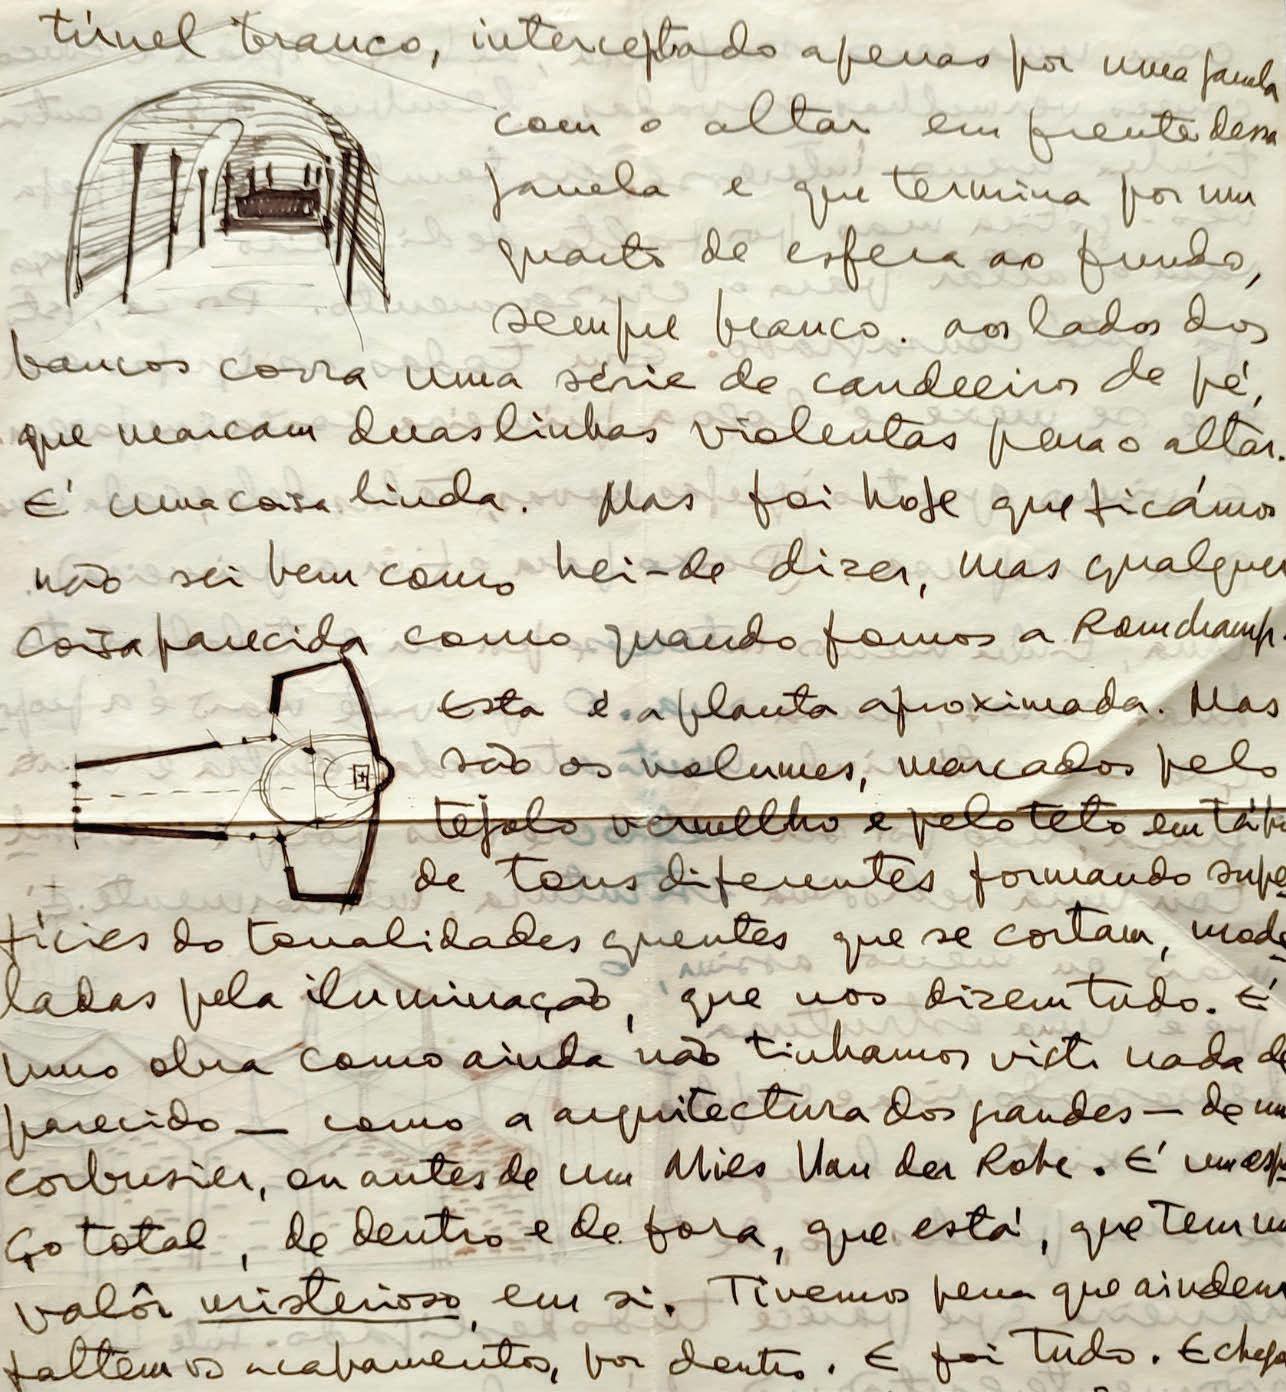 túnel branco, interceptado apenas por uma janela
com o altar em frente dessa
janela e que termina por um
quarto de esfera ao fundo,
sempre branco. aos lados dos
bancos corra uma série de candeeiros de pé,
que marcam duas linhas violentas para o altar.
É uma coisa linda. Mas foi hoje que ficámos
não sei bem como hei-de dizer, mas qualquer
coisa parecida como quando fomos a Romchamp.
Esta é a planta aproximada. Mas
são os volumes, marcados pelo
tejolo vermelho e pelo teto em
de tons diferentes formando supe
fícies do tonalidades quentes que se cortam, mode
ladas pela iluminação, que nos dizem tudo. É
uma obra como ainda não tinhamos visto nada de
parecido — como a arquitectura dos grandes — de um
corbusier, ou antes de um Mies Van der Rohe. É um espa
ço total, de dentro e de fora, que está, que tem um
valôr misterioso, em si. Tivemos pena que ainda
faltem os acabamentos, por dentro. E foi tudo. E